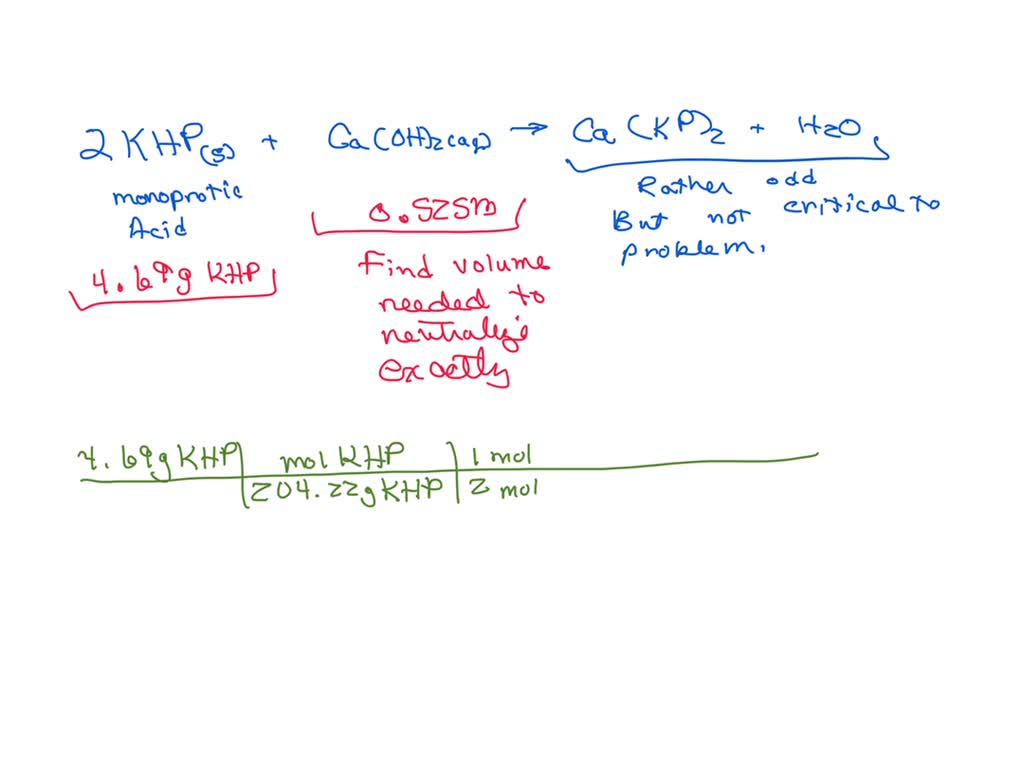 2 KHP(s) + Ca(OH)2(aq) → Ca(KP)2 + H2O
monoprotic
Acid
4.69g KHP
0.525M
Find volume
needed to
neutralize
exactly
Rather odd
But not critical to
problem.
4.69g KHP | mol KHP | 1 mol
204.22g KHP | 2 mol